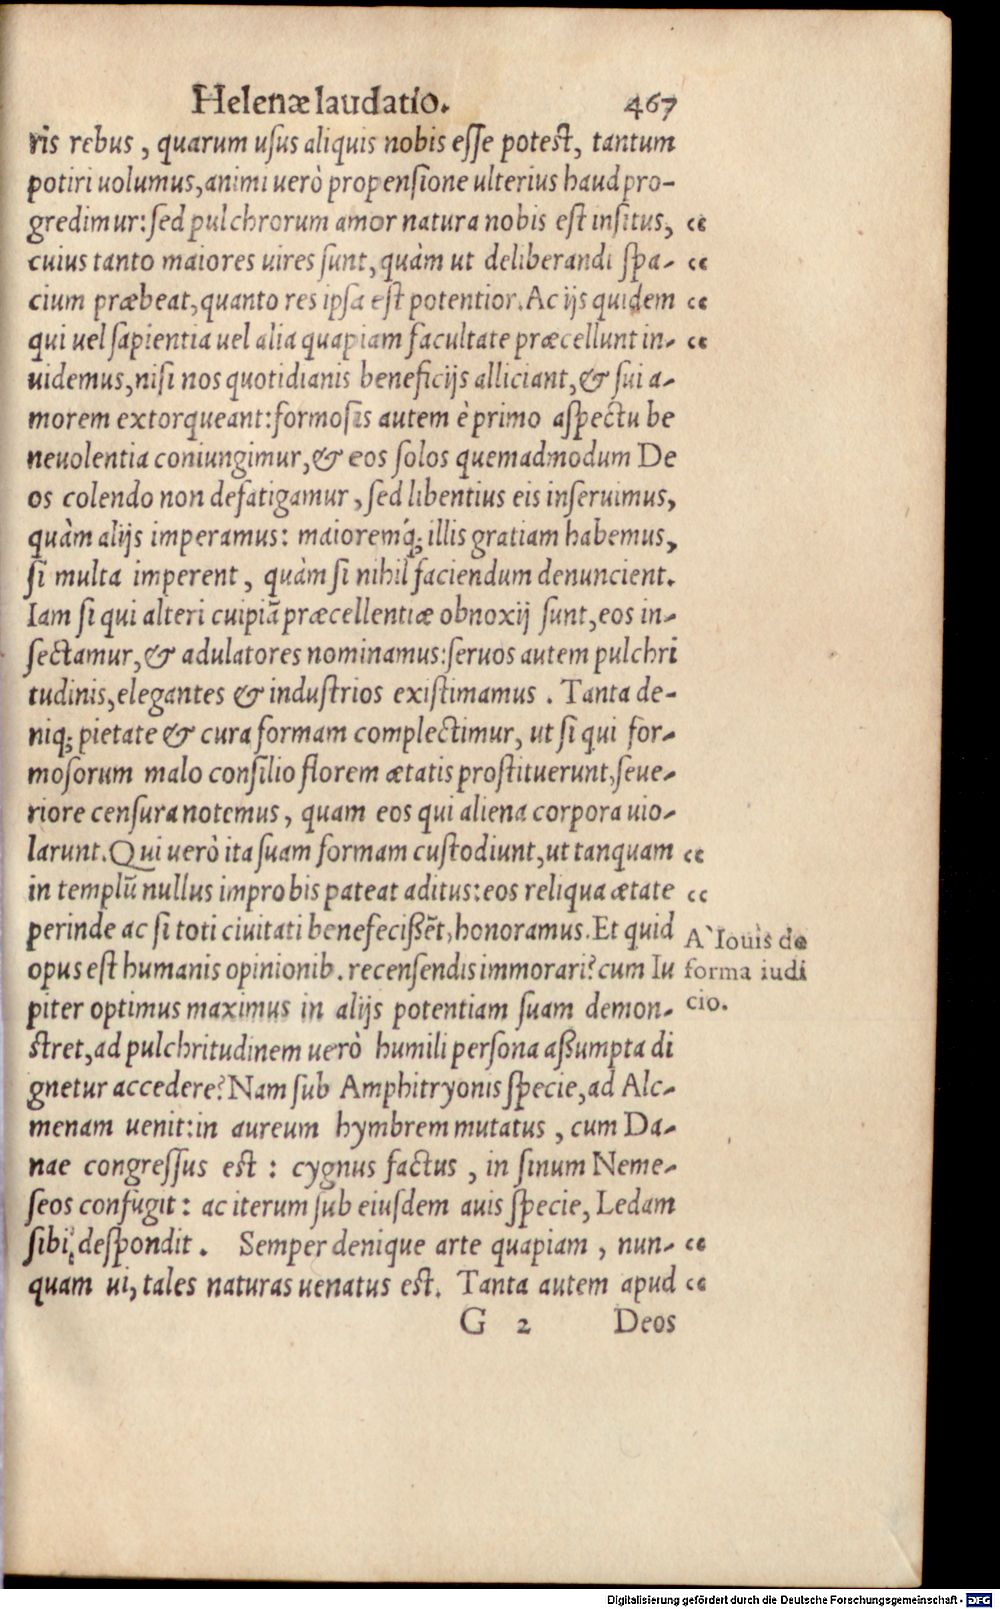 Helenæ laudatio. 467
ris rebus, quarum usus aliquis nobis esse potest, tantum
potiri uolumus, animi uerò propensione ulterius haud pro-
gredimur: sed pulchrorum amor natura nobis est insitus, cc
cuius tanto maiores uires sunt, quàm ut deliberandi spa- cc
cium præbeat, quanto res ipsa est potentior. Ac ijs quidem cc
qui uel sapientia uel alia quapiam facultate præcellunt in- cc
uidemus, nisi nos quotidianis beneficijs alliciant, & sui a-
morem extorqueant: formosis autem è primo aspectu be
neuolentia coniungimur, & eos solos quemadmodum De
os colendo non defatigamur, sed libentius eis inseruimus,
quàm alijs imperamus: maioremq́; illis gratiam habemus,
si multa imperent, quàm si nihil faciendum denuncient.
Iam si qui alteri cuipiã præcellentiæ obnoxij sunt, eos in-
sectamur, & adulatores nominamus: seruos autem pulchri
tudinis, elegantes & industrios existimamus. Tanta de-
niq; pietate & cura formam complectimur, ut si qui for-
mosorum malo consilio florem ætatis prostituerunt, seue-
riore censura notemus, quam eos qui aliena corpora uio-
larunt. Qui uerò ita suam formam custodiunt, ut tanquam cc
in templũ nullus improbis pateat aditus: eos reliqua ætate cc
perinde ac si toti ciuitati benefecißẽt, honoramus. Et quid
opus est humanis opinionib. recensendis immorari? cum Iu
piter optimus maximus in alijs potentiam suam demon-
stret, ad pulchritudinem uerò humili persona aßumpta di
gnetur accedere? Nam sub Amphitryonis specie, ad Alc-
menam uenit: in aureum hymbrem mutatus, cum Da-
nae congressus est: cygnus factus, in sinum Neme-
seos confugit: ac iterum sub eiusdem auis specie, Ledam
sibi despondit. Semper denique arte quapiam, nun- cc
quam ui, tales naturas uenatus est. Tanta autem apud cc
G 2 Deos
A` Iouis de
forma iudi
cio.
Digitalisierung gefördert durch die Deutsche Forschungsgemeinschaft - DFG